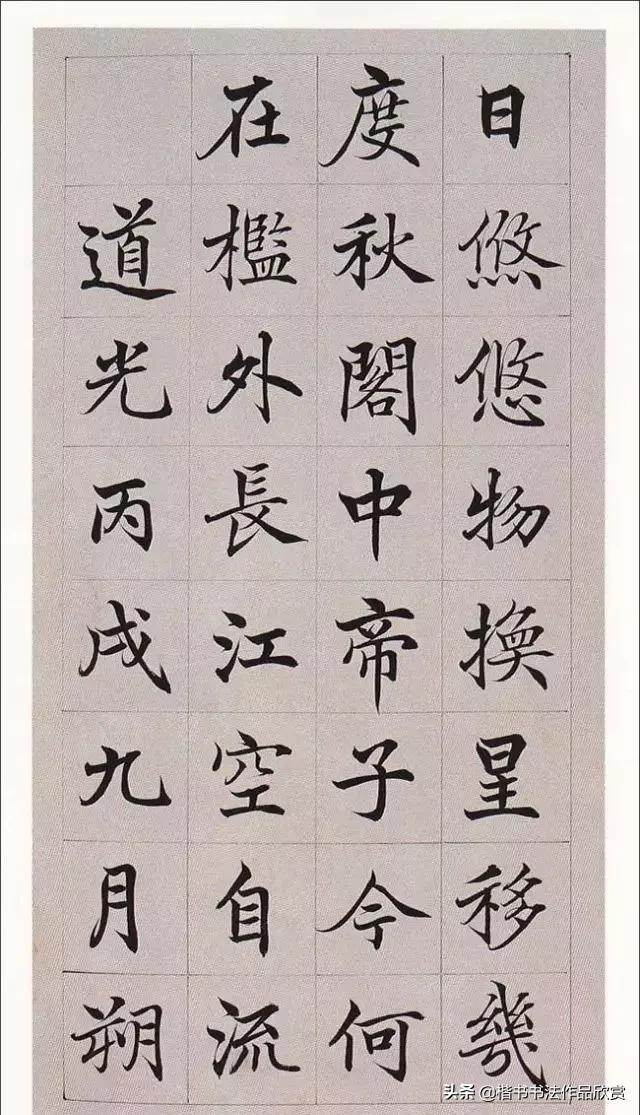 日悠悠物換星移幾
度秋閣中帝子今何
在檻外長江空自流
道光丙戌九月朔
头条 @楷书书法作品欣赏